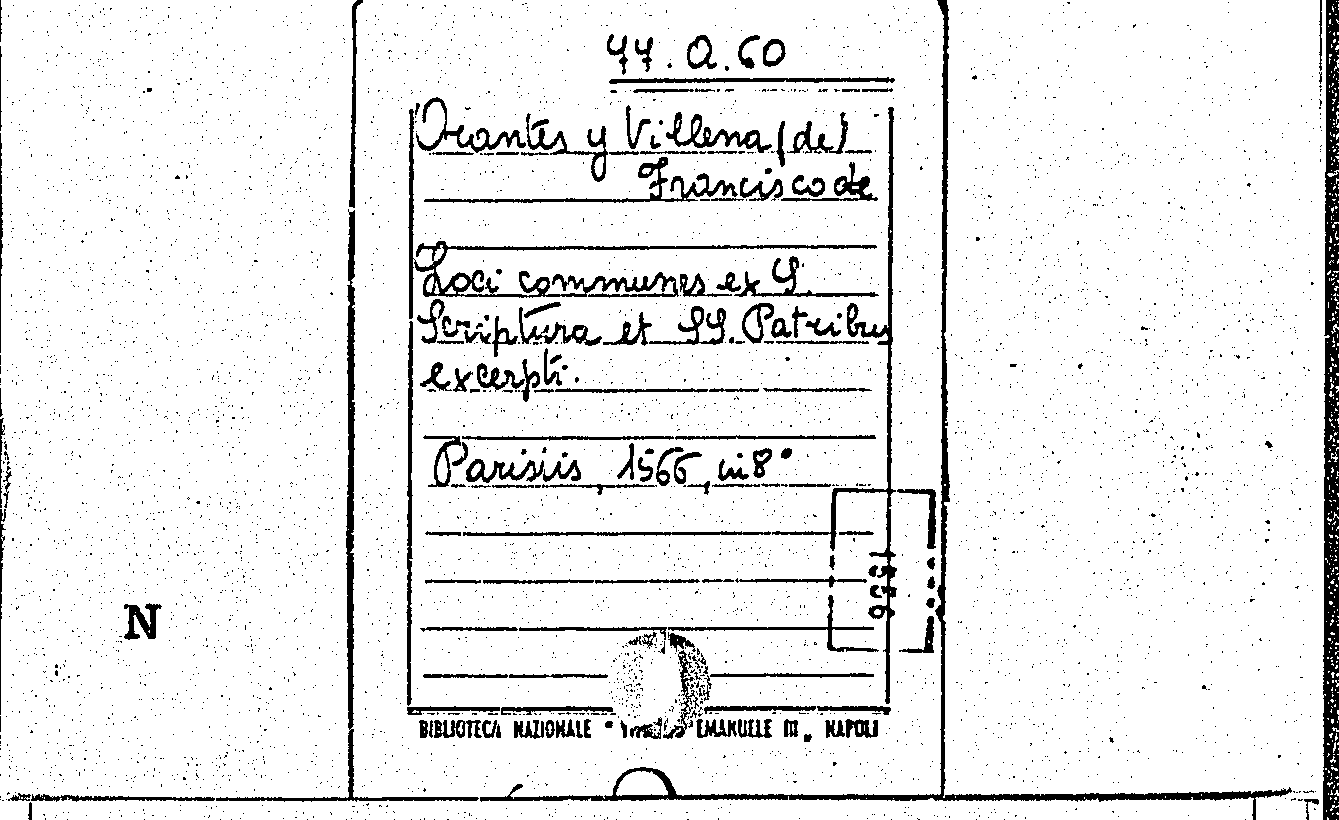 44.Q.60
Orantes y Villena (de)
Francisco de
Loci communes ex S.
Scriptura et SS. Patribus
excerpti.
Parisiis, 1566, in 8°
1556
N
BIBLIOTECA NAZIONALE " EMANUELE III„ NAPOLI